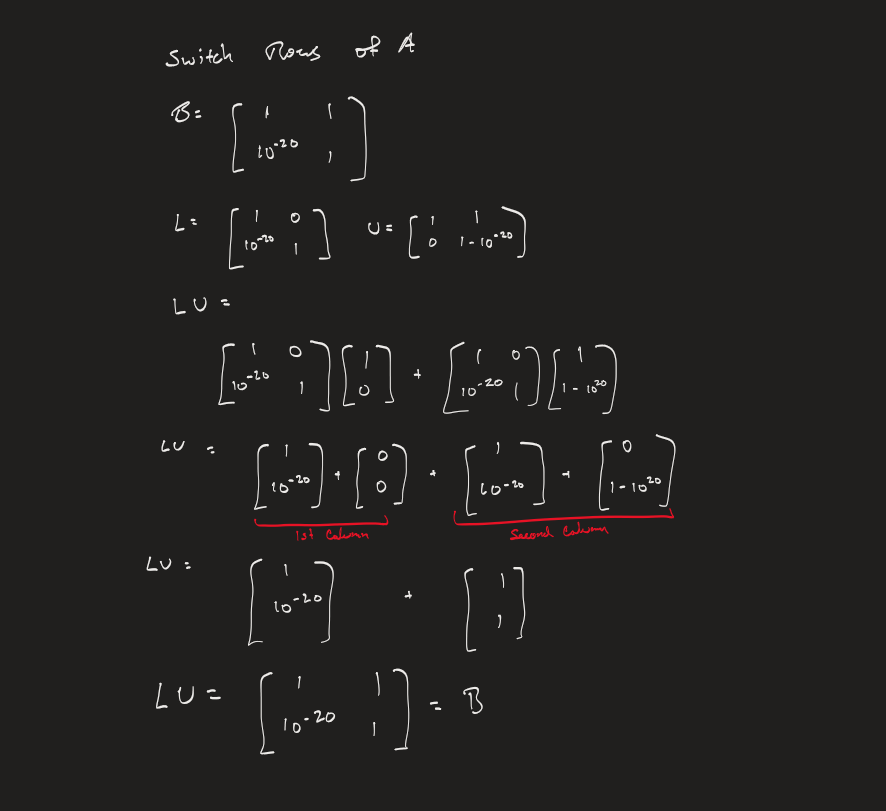 Switch Rows of A
B = [ 1 1 ; 10^-20 1 ]
L = [ 1 0 ; 10^-20 1 ] U = [ 1 1 ; 0 1 - 10^-20 ]
LU =
[ 1 0 ; 10^-20 1 ] [ 1 ; 0 ] + [ 1 0 ; 10^-20 1 ] [ 1 ; 1 - 10^20 ]
LU = [ 1 ; 10^-20 ] + [ 0 ; 0 ] + [ 1 ; 10^-20 ] + [ 0 ; 1 - 10^20 ]
1st Column Second Column
LU = [ 1 ; 10^-20 ] + [ 1 ; 1 ]
LU = [ 1 1 ; 10^-20 1 ] = B